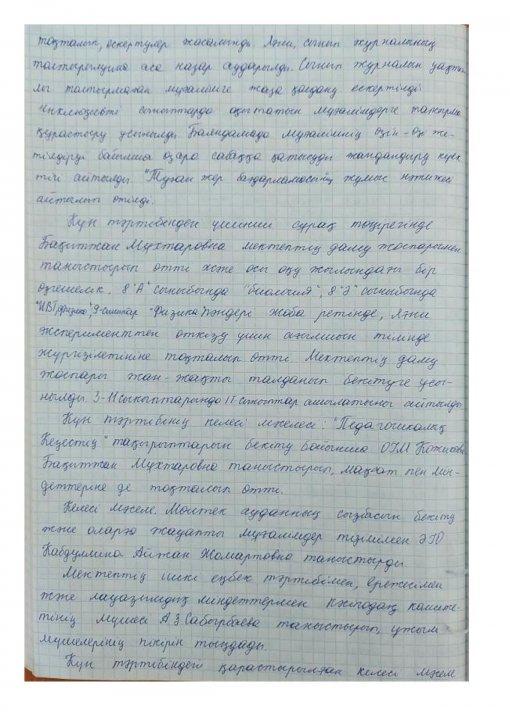 тоқталып, ескертулер жасалынды. Яғни, сынып журналының
толтырылуына аса назар аударылды. Сынып журналын уақты-
лы толтырмаған мұғалімге жаза қолдану ескертілді
Инклюзивті сыныптарда оқытатын мұғалімдерге тапсырма
құрастыру ұсынылды. Баяндамада мұғалімнің өзін-өзі же-
тілдіруі бойынша өзара сабаққа қатысуды жандандыру
айтылды. "Туған жер бағдарламасының жұмыс нәтижесі
айтылып өтілді.
Күн тәртібіндегі үшінші сұрақ төңірегінде
Бақытжан Мұхтаровна мектептің даму жоспарымен
таныстырып өтті және осы оқу жылындағы бір
өзгешелік. 8 "А" сыныбында "биология", 8 "Ә" сыныбында
"ИВТ, физика", 9-сыныптар - Физика пәндері жоба ретінде, яғни
эксперименттен өткізу үшін ағылшын тілінде
жүргізілетініне тоқталып өтті. Мектептің даму
жоспары жан-жақты талданып бекітуге ұсы-
нылды. 3-11 сыныптарында IT сыныптар ашылатыны айтылды.
Күн тәртібінің келесі мәселесі: "Педагогикалық
Кеңестің" тақырыптарын бекіту бойынша ОІМ
Бақытжан Мұхтаровна таныстырып, мақсат пен мін-
деттеріне де тоқталып өтті.
Келесі мәселе. Мектеп ауданның сызбасын бекіту
және оларға жауапты мұғалімдер тізімімен ӘЮ
Кабдулмина Айжан Жомартовна таныстырды.
Мектептің ішкі еңбек тәртібімен, ережесімен
және лауазымдық міндеттермен кәсіподақ комите-
тінің мүшесі А.З.Сабырбаева таныстырып, ұжым
мүшелерінің пікірін тыңдады.
Күн тәртібіндегі қарастырылған келесі мәселе